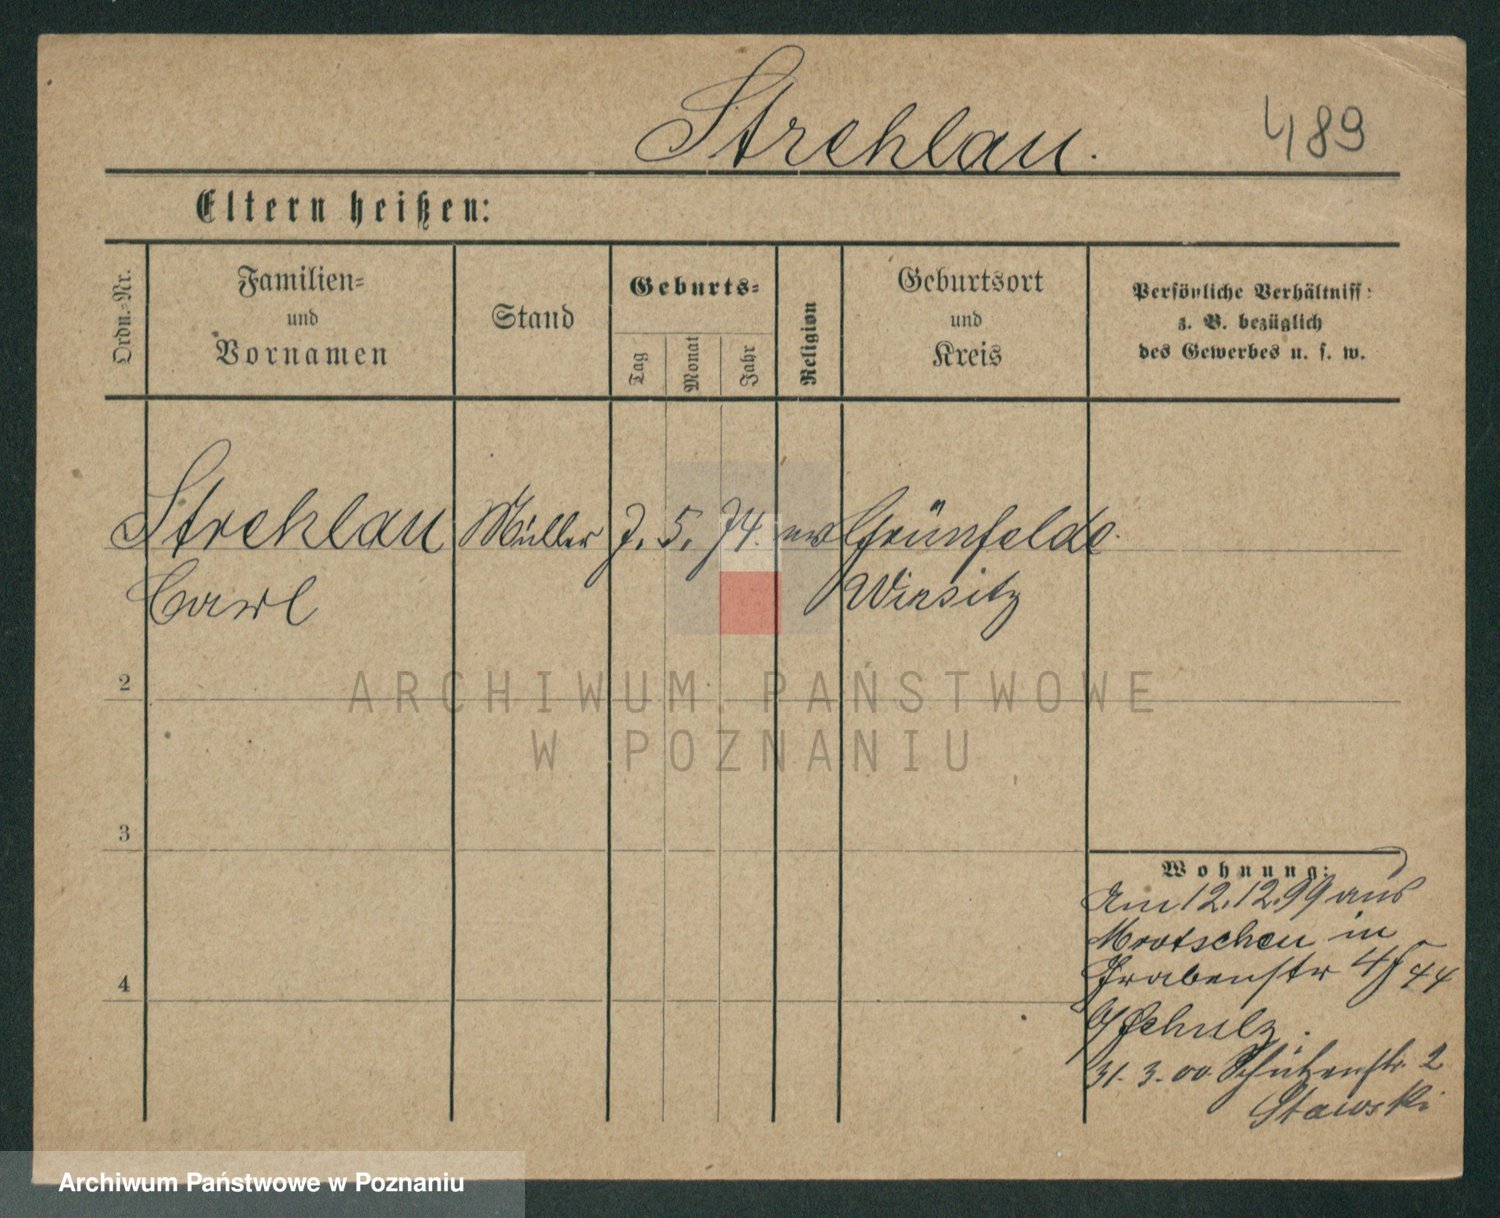 Strehlau.
489
Eltern heißen:
Ordn.-Nr.
Familien-
und
Vornamen
Stand
Geburts-
Tag
Monat
Jahr
Religion
Geburtsort
und
Kreis
Persönliche Verhältniss
z. B. bezüglich
des Gewerbes u. s. w.
Strehlau Müller 7. 5. 74. Grünfelde
Carl Wirsitz
ARCHIWUM PAŃSTWOWE
W POZNANIU
2
3
4
Wohnung:
Am 12.12.99 aus
Mrotschen in
Grabenstr
b/ Schulz.
31. 3. 00 Schützenstr. 2
Stawski
Archiwum Państwowe w Poznaniu